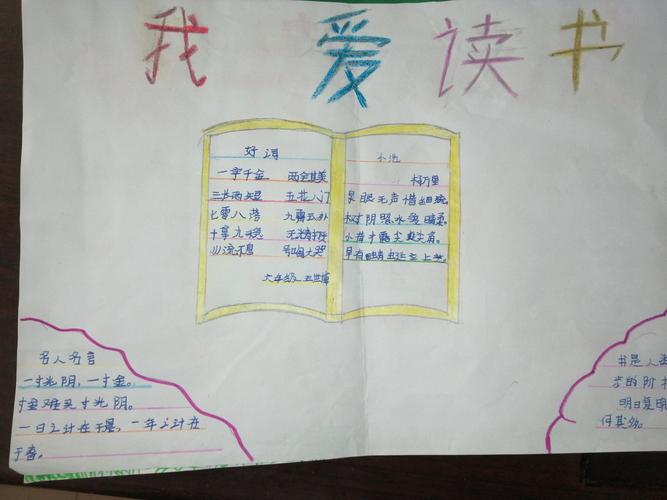 我爱读书
好词
一字千金 两全其美
三长两短 五花八门
七零八落 九霄云外
十拿九稳 无精打采
川流不息 号啕大哭
六年级
小池
杨万里
泉眼无声惜细流
树阴照水爱晴柔。
小荷才露尖尖角。
早有蜻蜓立上头。
名人名言
一寸光阴，一寸金。
寸金难买寸光阴。
一日之计在于晨，一年之计在
于春。
书是人类
步的阶梯
明日复明
何其多